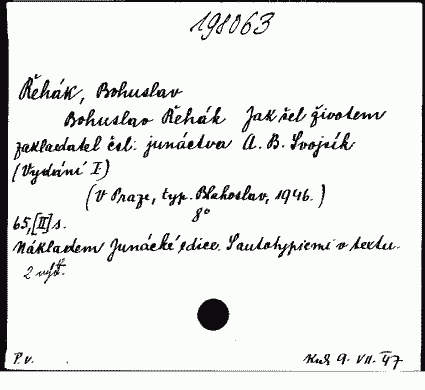 198063
Řehák, Bohuslav
Bohuslav Řehák Jak šel životem
zakladatel čsl. junáctva A. B. Svojsík
(Vydání I.)
(V Praze, typ. Blahoslav, 1946.)
8°
65, [II] s.
Nákladem Junácké edice. S autotypiemi v textu.
2 výt.
P. v.
9. VII. 47